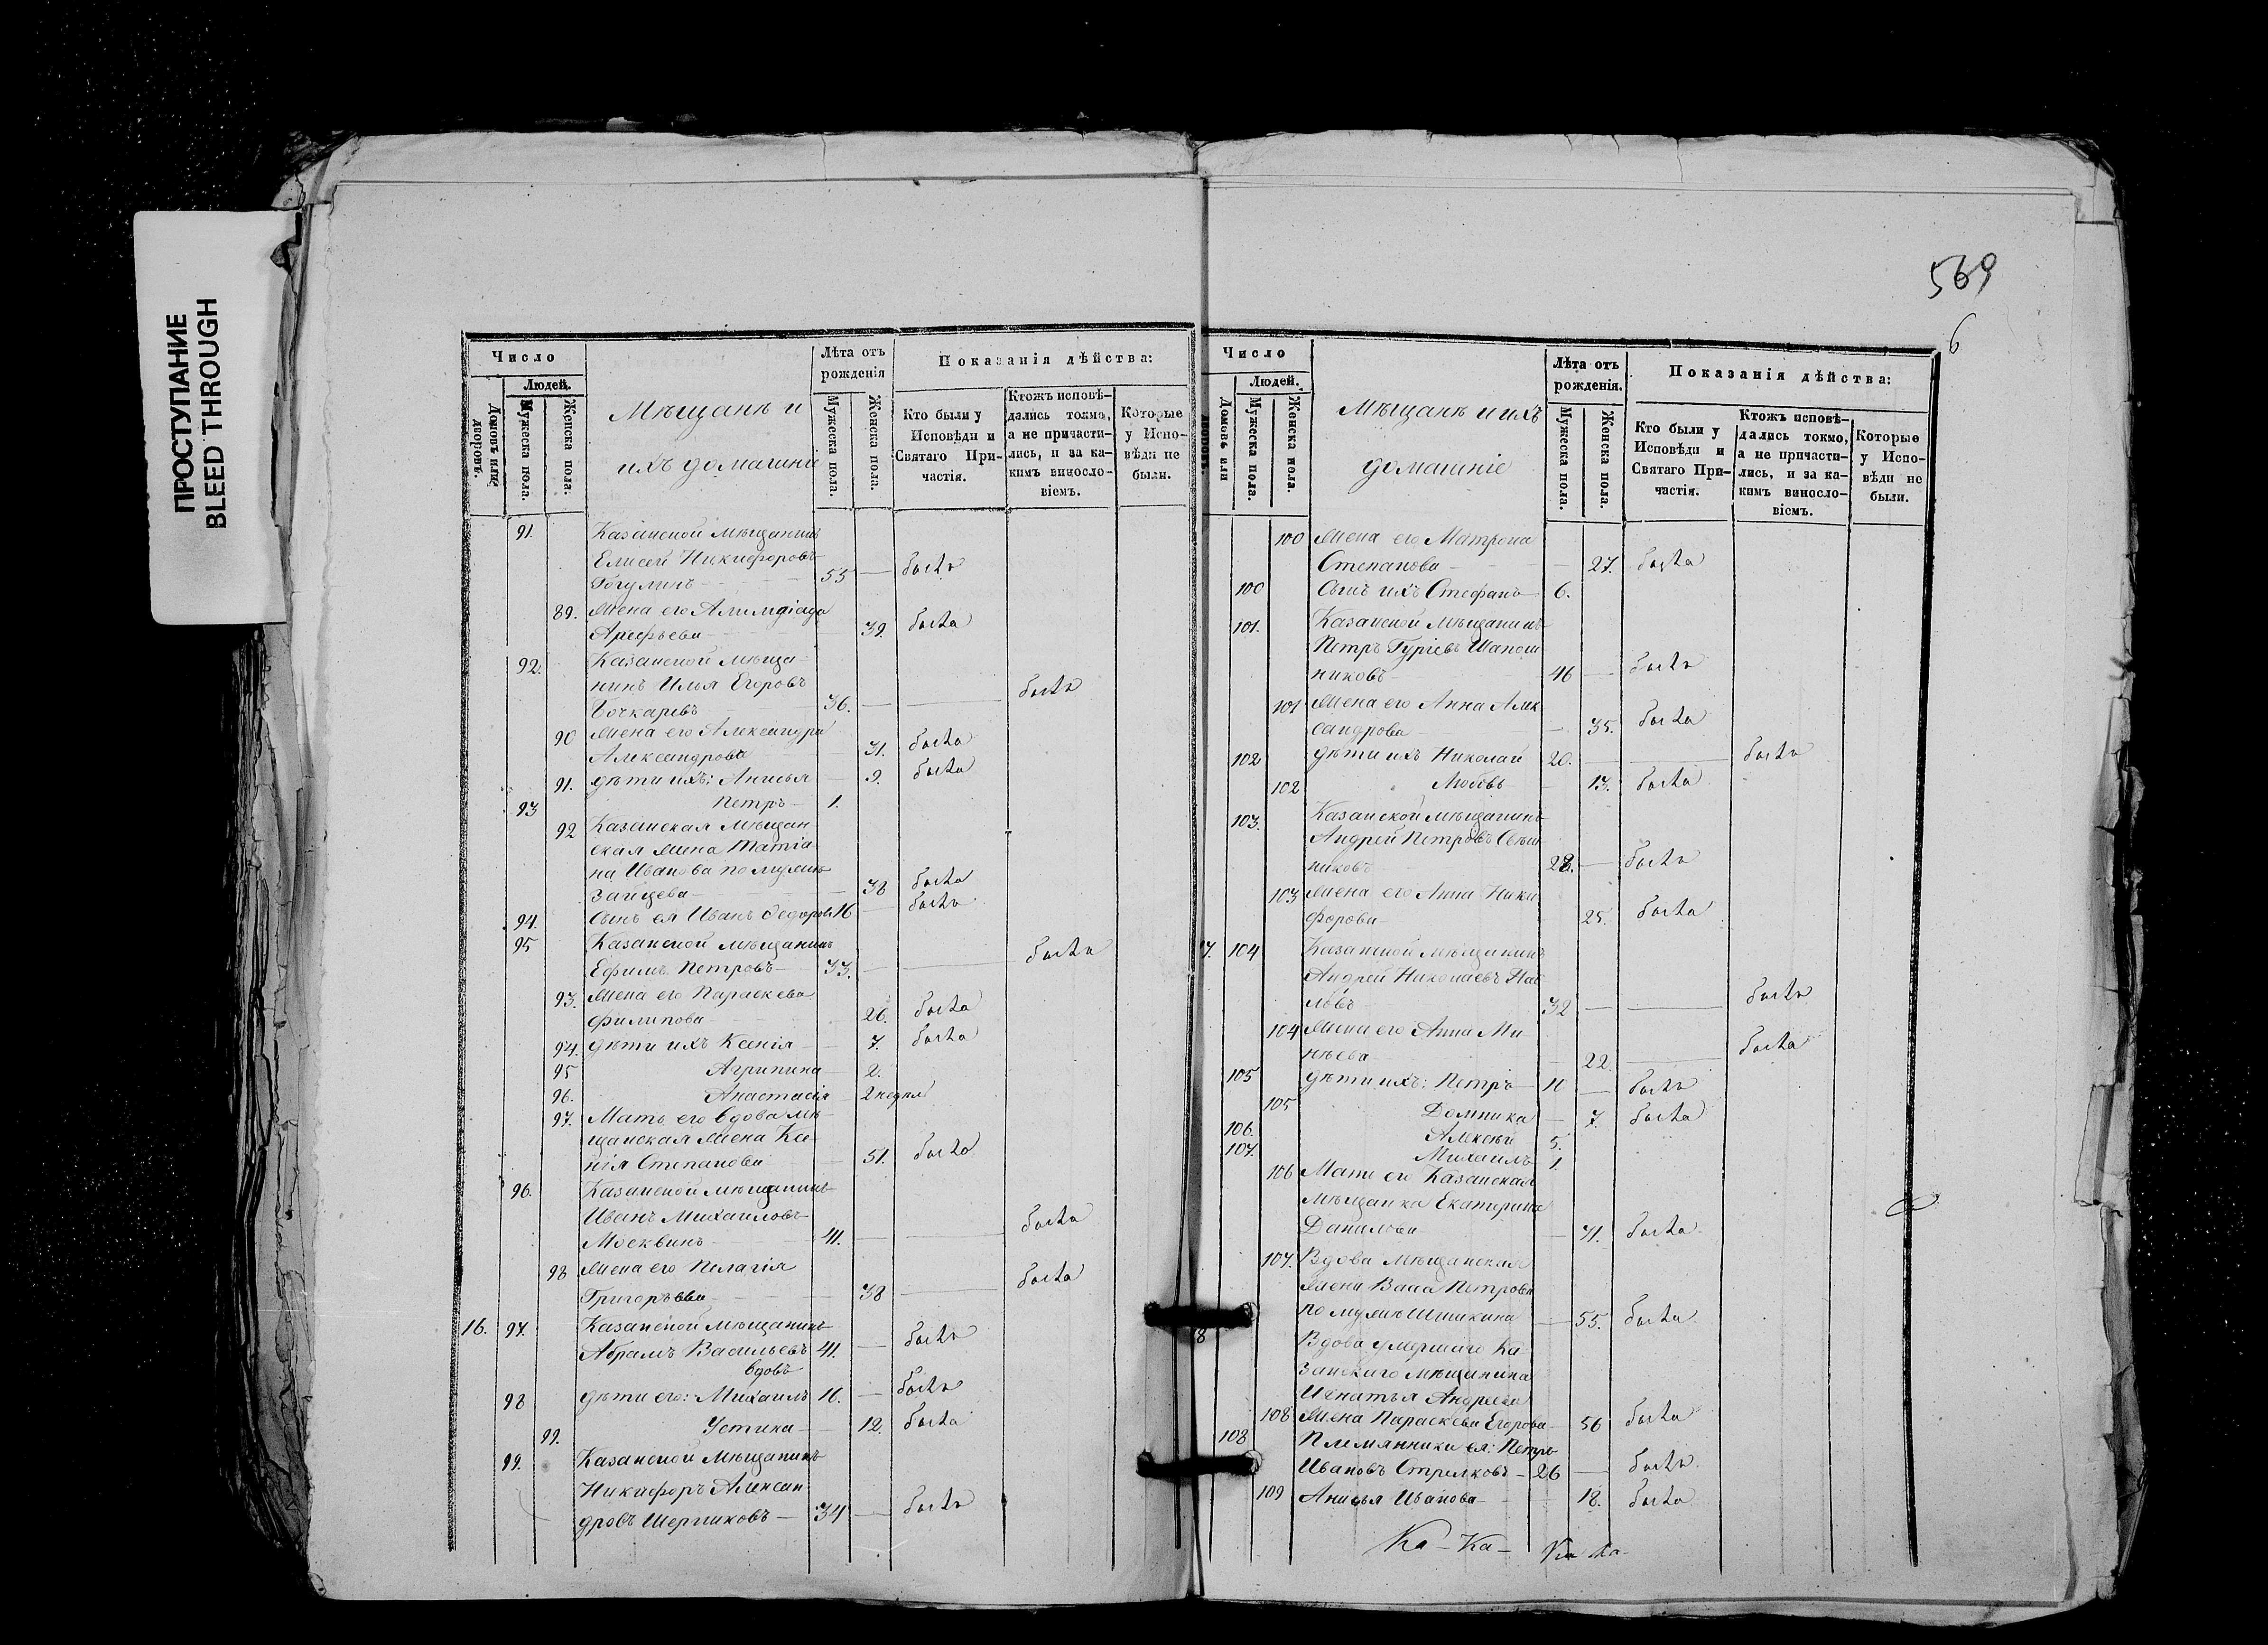 ПРОСТУПАНИЕ
BLEED THROUGH
569
6
Число
Людей.
Домовъ или дворовъ.
Мужеска пола.
Женска пола.
Мѣщане и
ихъ домашніе
Лѣта отъ
рожденія
Мужеска пола.
Женска пола.
Показанія дѣйства:
Кто были у
Исповѣди и
Святаго При-
частія.
Ктожъ исповѣ-
дались токмо,
а не причасти-
лись, и за ка-
кимъ виносло-
віемъ.
Которые
у Испо-
вѣди не
были.
91. Казанской мѣщанинъ
Елисей Никифоровъ
55 — былъ
89. Жена его
Арефьева — 39. была
92. Казанской мѣща-
нинъ Илья Егоровъ
Бочкаревъ 36. — — былъ
90 Жена его Александра
Александрова — 31. была
91. дѣти ихъ: Анисья — 9. была
93 Петръ — 1.
92 Казанская мѣщан
ская жена Татіа
на Иванова по мужѣ
Зайцева — 38 была
94. Сынъ ея Иванъ Федоровъ 16 — былъ
95 Казанской мѣщанинъ
Ефимъ Петровъ — 33. — — былъ
93. Жена его Параскева
Филипова — 26. была
94. дѣти ихъ Ксенія — 7. была
95 Агрипина — 2.
96. Анастасія — 2 недѣл
97. Мать его вдова мѣ-
щанская жена Ксе-
нія Степанова — 51. была
96. Казанской мѣщанинъ
Иванъ Михайловъ
Москвинъ — 41. — — былъ
98 Жена его Пелагія
Григорьева — 38 — была
16. 97. Казанской мѣщанинъ
Абрамъ Васильевъ 41. — былъ
вдовъ
98 дѣти его: Михаилъ 16. — былъ
99. Устина — 12. была
99. Казанской мѣщанинъ
Никифоръ Алексан
дровъ Шерниковъ — 34 — былъ
Число
Людей.
Домовъ или дворовъ.
Мужеска пола.
Женска пола.
Мѣщане и ихъ
домашніе
Лѣта отъ
рожденія.
Мужеска пола.
Женска пола.
Показанія дѣйства:
Кто были у
Исповѣди и
Святаго При-
частія.
Ктожъ исповѣ-
дались токмо,
а не причасти-
лись, и за ка-
кимъ виносло-
віемъ.
Которые
у Испо-
вѣди не
были.
100 Жена его Матрена
Степанова — 27. была
100 Сынъ ихъ Стефанъ — 6.
101. Казанской мѣщанинъ
Петръ Гуріевъ Шапош
никовъ 46 — былъ
101 Жена его Анна Алек
сандрова — 35. была
102 дѣти ихъ Николай 20. — — былъ
102 Любовь — 13. была
103. Казанской мѣщанинъ
Андрей Петровъ
никовъ 28. — былъ
103 Жена его Анна Ники
форова — 25. была
7. 104 Казанской мѣщанинъ
Андрей Николаевъ
32 — — былъ
104 Жена его Анна Ми
нѣева — 22. — была
105 дѣти ихъ: Петръ — 11 — былъ
105 Домника — 7. была
106. Алексѣй 5.
107. Михаилъ 1.
106 Мать его Казанская
мѣщанка Екатерина
Данилова — 71. была
107. Вдова мѣщанская
жена Васса Петрова
по мужѣ Шишкина — 55. была
8 Вдова умершаго Ка
занскаго мѣщанина
Игнатья Андреева
108 Жена Параскева Егорова — 56 была
108 Племянники ея: Петръ
Ивановъ Стрелковъ — 26 — былъ
109 Анисья Иванова — 18. была
Ка — Ка — Ка Ка —